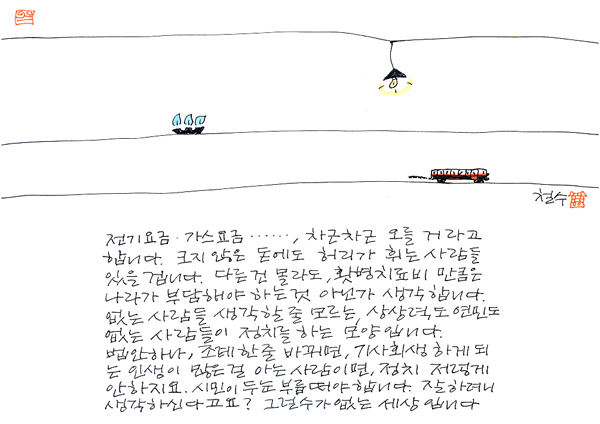 철수
전기요금·가스요금……, 차근차근 오를 거라고
합니다. 크지 않은 돈에도 허리가 휘는 사람들
있을 겁니다. 다른 건 몰라도, 화병치료비 만큼은
나라가 부담해야 하는것 아닌가 생각합니다.
없는 사람들 생각할 줄 모르는, 상상력도 연민도
없는 사람들이 정치를 하는 모양입니다.
법안하나, 조례한줄 바뀌면, 기사회생 하게 되
는 인생이 많은걸 아는 사람이면, 정치 저렇게
안하지요. 시민이 두눈 부릅떠야 합니다. 잘하려니
생각하신다고요? 그럴수가 없는 세상입니다